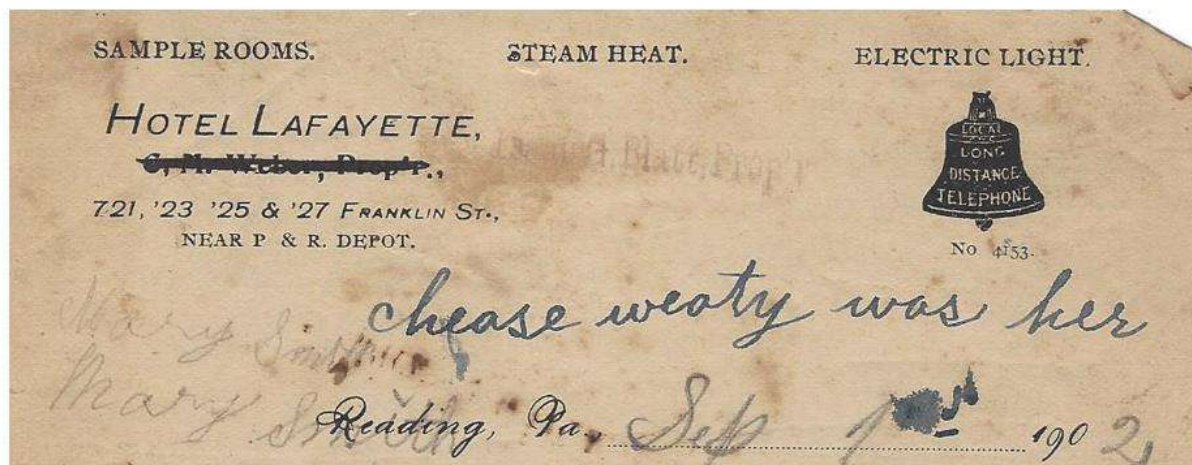 SAMPLE ROOMS. STEAM HEAT. ELECTRIC LIGHT.
HOTEL LAFAYETTE,
C, M. Weber, Prop'r.,
Matt, Prop'r
721, '23 '25 & '27 FRANKLIN ST.,
NEAR P & R. DEPOT.
LOCAL
LONG
DISTANCE
TELEPHONE
No 4153.
chease weaty was her
Mary Smith
Mary Smith
Reading, Pa., Sep 1 1902